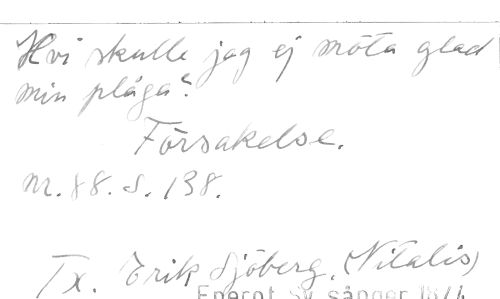 Hvi skulle jag ej möta glad
min plåga?
Försakelse.
nr. 88. s. 138.
Tx. Erik Sjöberg. (Vitalis)
Enerot Sv. sånger 1874